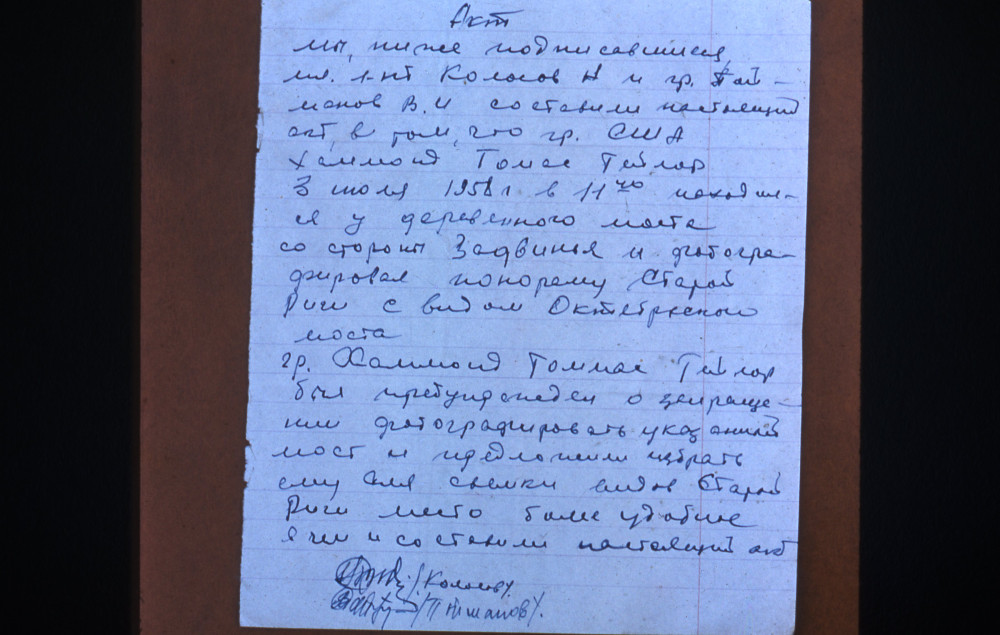 Акт
мы, ниже подписавшиеся,
мл. л-нт Колосов Н и гр. Той-
манов В. И составили настоящий
акт, в том, что гр. США
Хаммонд Томас Тейлор
3 июля 1958 г в 11 40 находил-
ся у деревенного моста
со стороны Задвинья и фотогра-
фировал понораму Старой
Риги с видом Октябрьского
моста
гр. Хаммонд Томмас Тейлор
был предупрежден о запреще-
нии фотографировать указанный
мост и предложили избрать
ему для съемки видов Старой
Риги место более удобное
о чем и составили настоящий акт
/Колосов/.